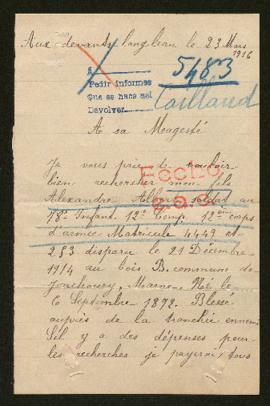 Aux devants langleau le 23 Mars
1916
A
Pedir informes
Que se hace así
Devolver
5483
Caillaud
A sa Magesté
Je vous prie de vouloir
bien rechercher mon fils
Alexandre soldat au
78e Infant. 12e Comp. 12me corps
d'armée Matricule 4449 et
283 disparu le 21 Décembre
1914 au bois B. commune de
Jonchery, Marne. Né le
6 Septembre 1892. Blessé
auprès de la tranchée ennem
Sil y a des dépenses pour
les recherches je payerai tous